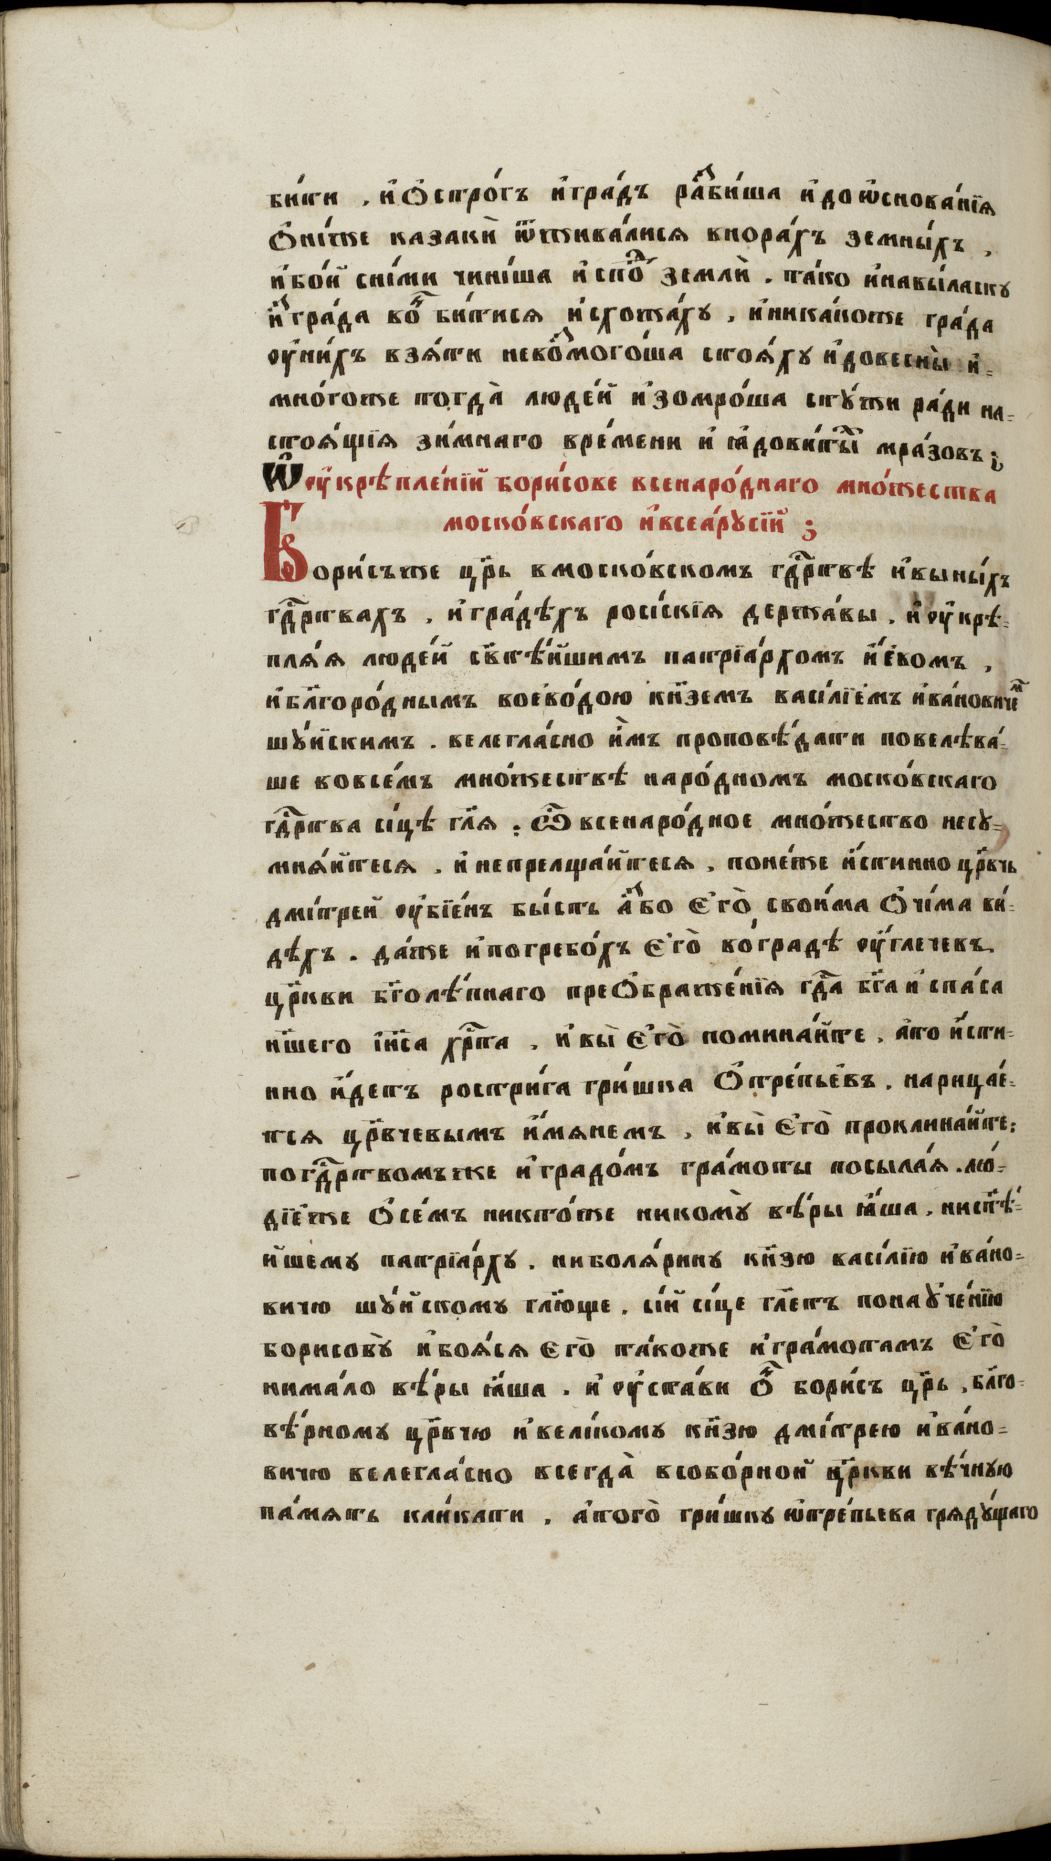 би́ти , и҆ Ѻстро́гъ и҆гра́дъ разби́ша и҆до ѡ҆снова́нїѧ
Ѻни́же казакѝ ѿживали́сѧ внора́хъ земны́хъ ,
и҆бо́й сни́ми чини́ша и҆спод̾ землѝ . та́ко и҆навы́ласку
и҆з̾ гра́да во́н̾ би́тисѧ и҆схожа́ху , и҆ника́коже гра́да
ᲂу҆ни́хъ взѧ́ти невоз̾мого́ша стоѧ́ху и҆довесны̀ и҆-
мно́гоже тогда̀ люде́й и҆зомро́ша сту́жи ра́ди на-
стоѧ́щїѧ зи́мнаго вре́мени и҆ ꙗ҆дови́тых̾ мра́зовъ ;
Ѽ ᲂу҆крѣпле́нїй бори́сове всенаро́днаго мно́жества
моско́вскаго и҆всеѧ́русїй ;
Бори́съже цр҃ь вмоско́вскомъ гдⷭ҇рствѣ и҆вы́ныхъ
гдⷭ҇рствахъ , и҆гра́дѣхъ росі́скїѧ держа́вы , и҆ ᲂу҆крѣ-
плѧ́ѧ люде́й ст҃ѣ́йшимъ патрїа́рхомъ и҆е́вомъ ,
и҆бл҃горо́днымъ воево́дою кн҃земъ васі́лїемъ и҆ва́новичеⷨ
шу́йскимъ . велегла́сно и҆̀мъ проповѣ́дати повелѣва́-
ше ковсе́мъ мно́жествѣ наро́дномъ моско́вскаго
гдⷭ҇рства си́цѣ гл҃ѧ ; Ѽ всенаро́дное мно́жество несу-
мнѧ́йтесѧ , и҆непрелща́йтесѧ , поне́же и҆́стинно цр҃вчь
дми́трей ᲂу҆бїе́нъ бы́сть а҆́з̾бо Є҆го̀ свои́ма Ѻчи́ма ви́-
дѣхъ . да́же и҆погребо́хъ Є҆го̀ во́градѣ ᲂу҆́глечевъ
цр҃кви бг҃олѣ́пнаго преѺбраже́нїѧ гдⷭ҇а бг҃а и҆спа́са
н҃шего і҆и҃са хрⷭ҇та , и҆вы̀ Є҆го̀ помина́йте , а҆то и҆́сти-
нно и҆́детъ ростри́га гри́шка Ѻтре́пьевъ , нарица́е-
тсѧ цр҃вчевымъ и҆́мѧнемъ , и҆вы̀ Є҆го̀ проклина́йте ;
погдⷭ҇рствомъже и҆градо́мъ гра́моты посыла́ѧ . лю́-
дїеже Ѻсе́мъ никто́же никому̀ вѣ́ры ꙗ҆́ша , нист҃ѣ́-
йшему патрїа́рху , ниболѧ́рину кн҃зю васі́лїю и҆ва́но-
вичю шу́йскому гл҃юще , сі́й си́це гл҃етъ понаꙋче́нїю
борисову̀ и҆боѧ́сѧ Є҆го̀ та́коже и҆гра́мотамъ Є҆го̀
нима́ло вѣ́ры ꙗ҆́ша . и҆ ᲂу҆ста́ви Ѻ́н̾ бори́съ цр҃ь , бл҃го-
вѣ́рному цр҃вчю и҆вели́кому кн҃зю дми́трею и҆ва́но-
вичю велегла́сно всегда̀ всобо́рной цр҃кви вѣ́чную
па́мѧть кли́кати , а҆того̀ гри́шку ѡ҆тре́пьева грѧду́щаго